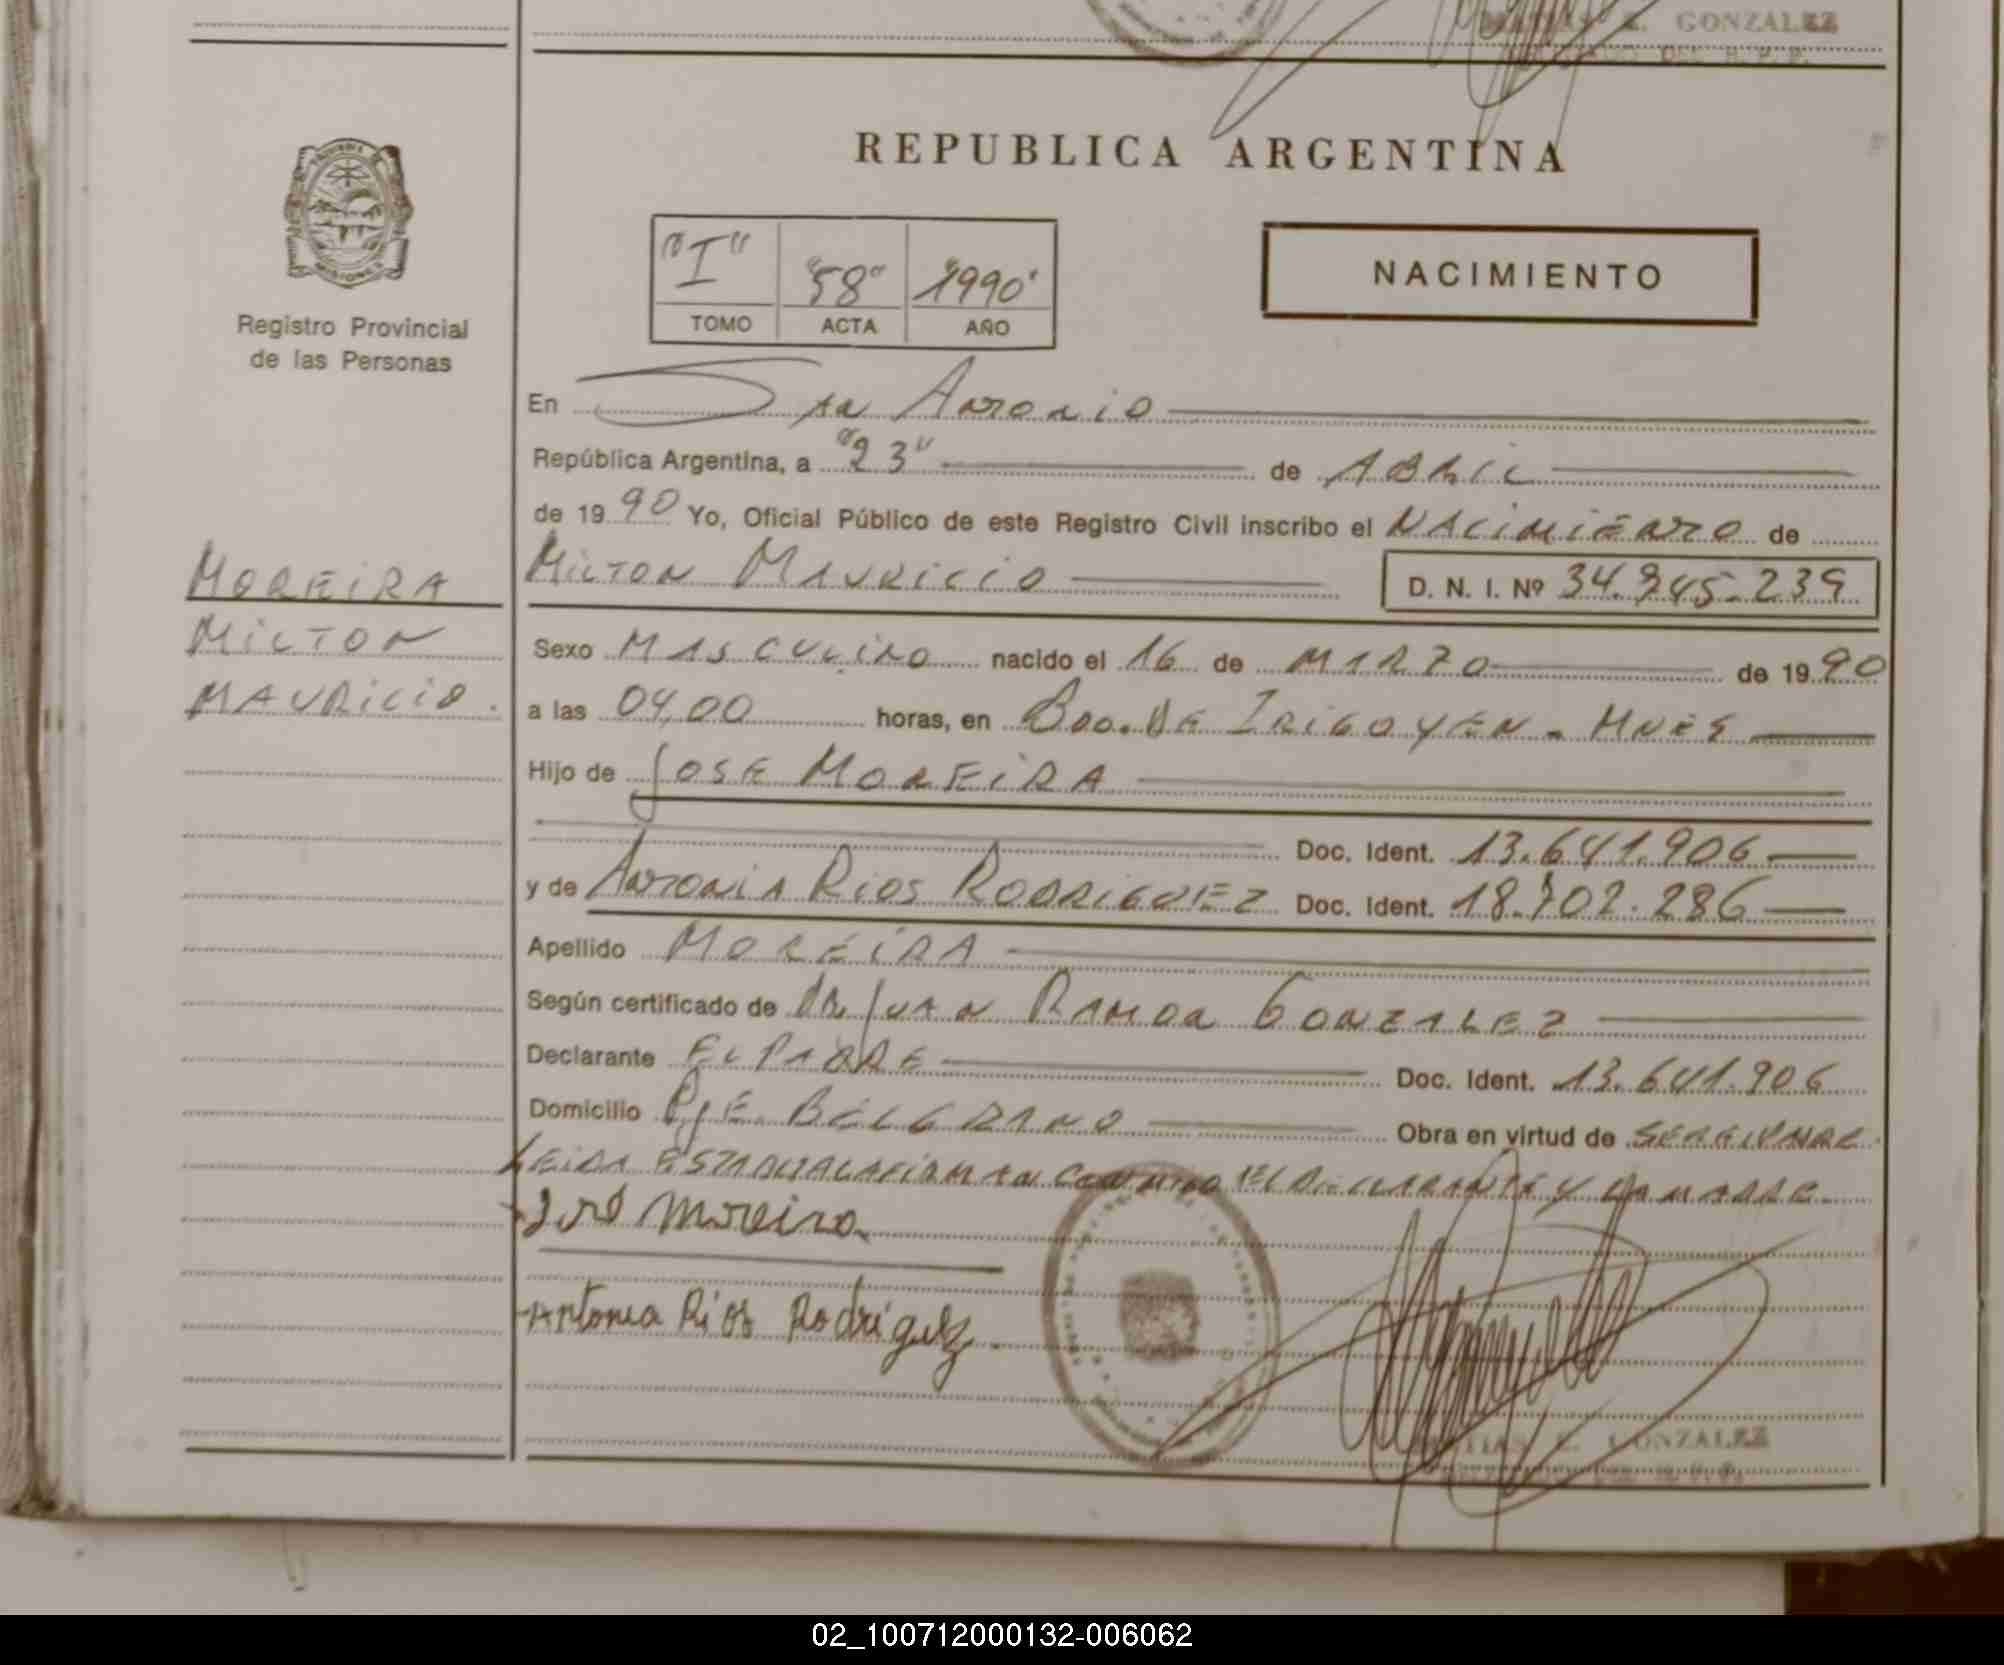 GONZALEZ
REPUBLICA ARGENTINA
"I" "58" "1990"
TOMO ACTA AÑO
NACIMIENTO
Registro Provincial
de las Personas
En San Antonio
República Argentina, a "23" de ABRIL
de 1990 Yo, Oficial Público de este Registro Civil inscribo el NACIMIENTO de
MOREIRA
MILTON
MAURICIO.
MILTON MAURICIO D. N. I. Nº 34.945.239
Sexo MASCULINO nacido el 16 de MARZO de 1990
a las 04,00 horas, en Bdo. DE IRIGOYEN - MNES
Hijo de JOSE MOREIRA
Doc. Ident. 13.641.906
y de ANTONIA RIOS RODRIGUEZ Doc. Ident. 18.702.286
Apellido MOREIRA
Según certificado de DR JUAN RAMON GONZALEZ
Declarante EL PADRE Doc. Ident. 13.641.906
Domicilio PJE. BELGRANO Obra en virtud de
LEIDA ESTA ACTA LA FIRMAN CONMIGO EL DECLARANTE Y LA MADRE.
José Moreira
Antonia Ríos Rodríguez.
E. GONZALEZ
02_100712000132-006062